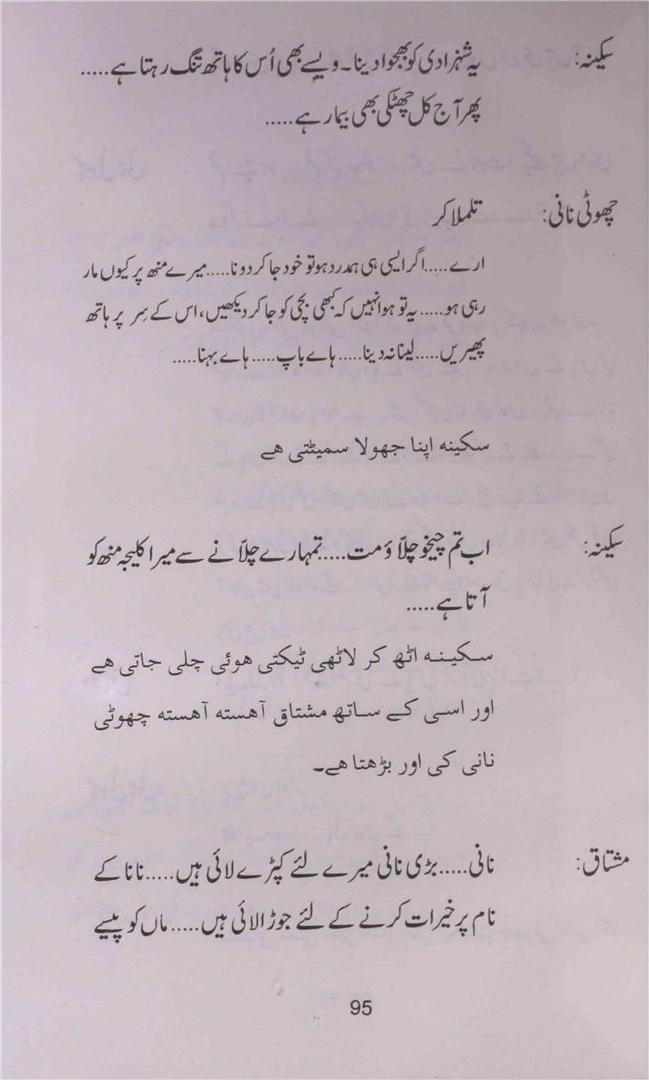 سکینہ: یہ شہزادی کو بھجوا دینا۔ ویسے بھی اُس کا ہاتھ تنگ رہتا ہے.....
پھر آج کل چھٹکی بھی بیمار ہے.....
چھوٹی نانی: تلملا کر
ارے..... اگر ایسی ہی ہمدرد ہو تو خود جا کر دو نا..... میرے منھ پر کیوں مار
رہی ہو..... یہ تو ہوا نہیں کہ کبھی بچی کو جا کر دیکھیں، اس کے سِر پر ہاتھ
پھیریں..... لینا نہ دینا..... ہاے باپ..... ہاے بہنا.....
سکینہ اپنا جھولا سمیٹتی ہے
سکینہ: اب تم چیخو چلّاؤ مت..... تمہارے چلّانے سے میرا کلیجہ منھ کو
آتا ہے.....
سکینہ اٹھ کر لاٹھی ٹیکتی ہوئی چلی جاتی ہے
اور اسی کے ساتھ مشتاق آهسته آهسته چھوٹی
نانی کی اور بڑھتا ہے۔
مشتاق: نانی..... بڑی نانی میرے لئے کپڑے لائی ہیں..... نانا کے
نام پر خیرات کرنے کے لئے جوڑا لائی ہیں..... ماں کو پیسے
95